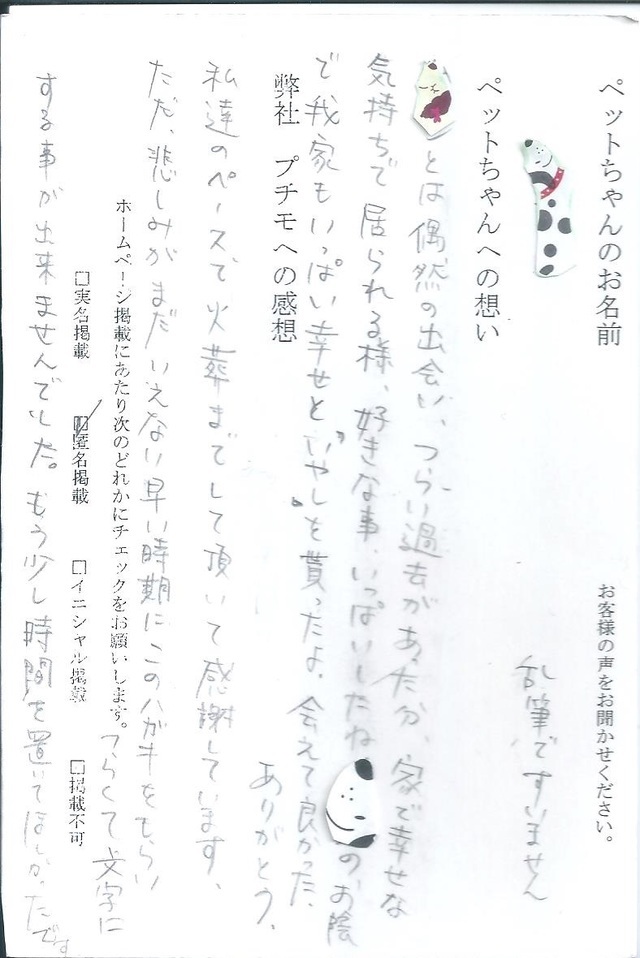 お客様の声をお聞かせください。
ペットちゃんのお名前
乱筆ですいません
ペットちゃんへの想い
とは偶然の出会い、つらい過去があった分、家で幸せな
気持ちで居られる様、好きな事、いっぱいしたね
の、お陰
で我家もいっぱい幸せと、いやしを貰ったよ、会えて良かった、
ありがとう、
弊社 プチモへの感想
私達のペースで火葬までして頂いて感謝しています、
ただ、悲しみがまだいえない早い時期にこのハガキをもらい
つらくて文字に
する事が出来ませんでした。もう少し時間を置いてほしかったです
ホームページ掲載にあたり次のどれかにチェックをお願いします。
□実名掲載 □匿名掲載 □イニシャル掲載 □掲載不可